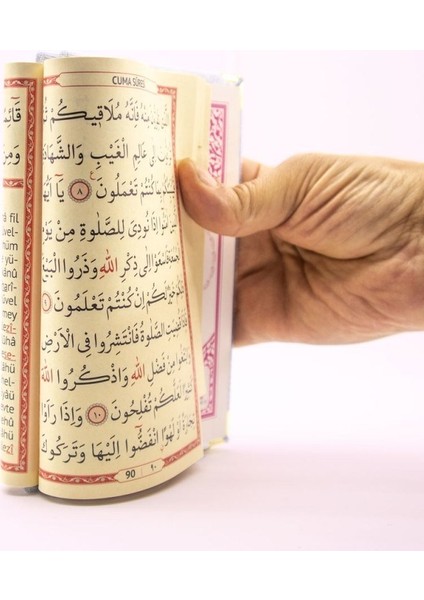 CUMA SÛRESİ
مِنْهُ فَاِنَّهُ مُلَاقٖيكُمْ
اِلٰى عَالِمِ الْغَيْبِ وَالشَّهَادَ
بِمَا كُنْتُمْ تَعْمَلُونَ ﴿٨﴾ يَٓا اَيُّهَا
اِذَا نُودِىَ لِلصَّلٰوةِ مِنْ يَوْ
فَاسْعَوْا اِلٰى ذِكْرِ اللّٰهِ وَذَرُوا الْبَيْعَ
خَيْرٌ لَكُمْ اِنْ كُنْتُمْ تَعْلَمُونَ
قُضِيَتِ الصَّلٰوةُ فَانْتَشِرُوا فِى الْاَرْضِ
وَابْتَغُوا مِنْ فَضْلِ اللّٰهِ وَاذْكُرُوا اللّٰهَ
لَعَلَّكُمْ تُفْلِحُونَ ﴿١٠﴾ وَاِذَا رَاَوْا
تِجَارَةً اَوْ لَهْوًا انْفَضُّٓوا اِلَيْهَا وَتَرَكُوكَ
90 ٩٠
قَائِمً
وَمِنَ
â fil
vel-
hüm
yü-
hânû
tarî-
üvel
mey
ezî-
ühâ
ese-
hel-
eyyü
evte
âhü
ezî